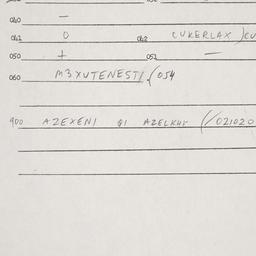 040 —
042 0 042 CUKERLAX )CU
050 + 052 —
060 M3XUTENESTI (054
900 AZEXENI GI AZELKHY (/021020